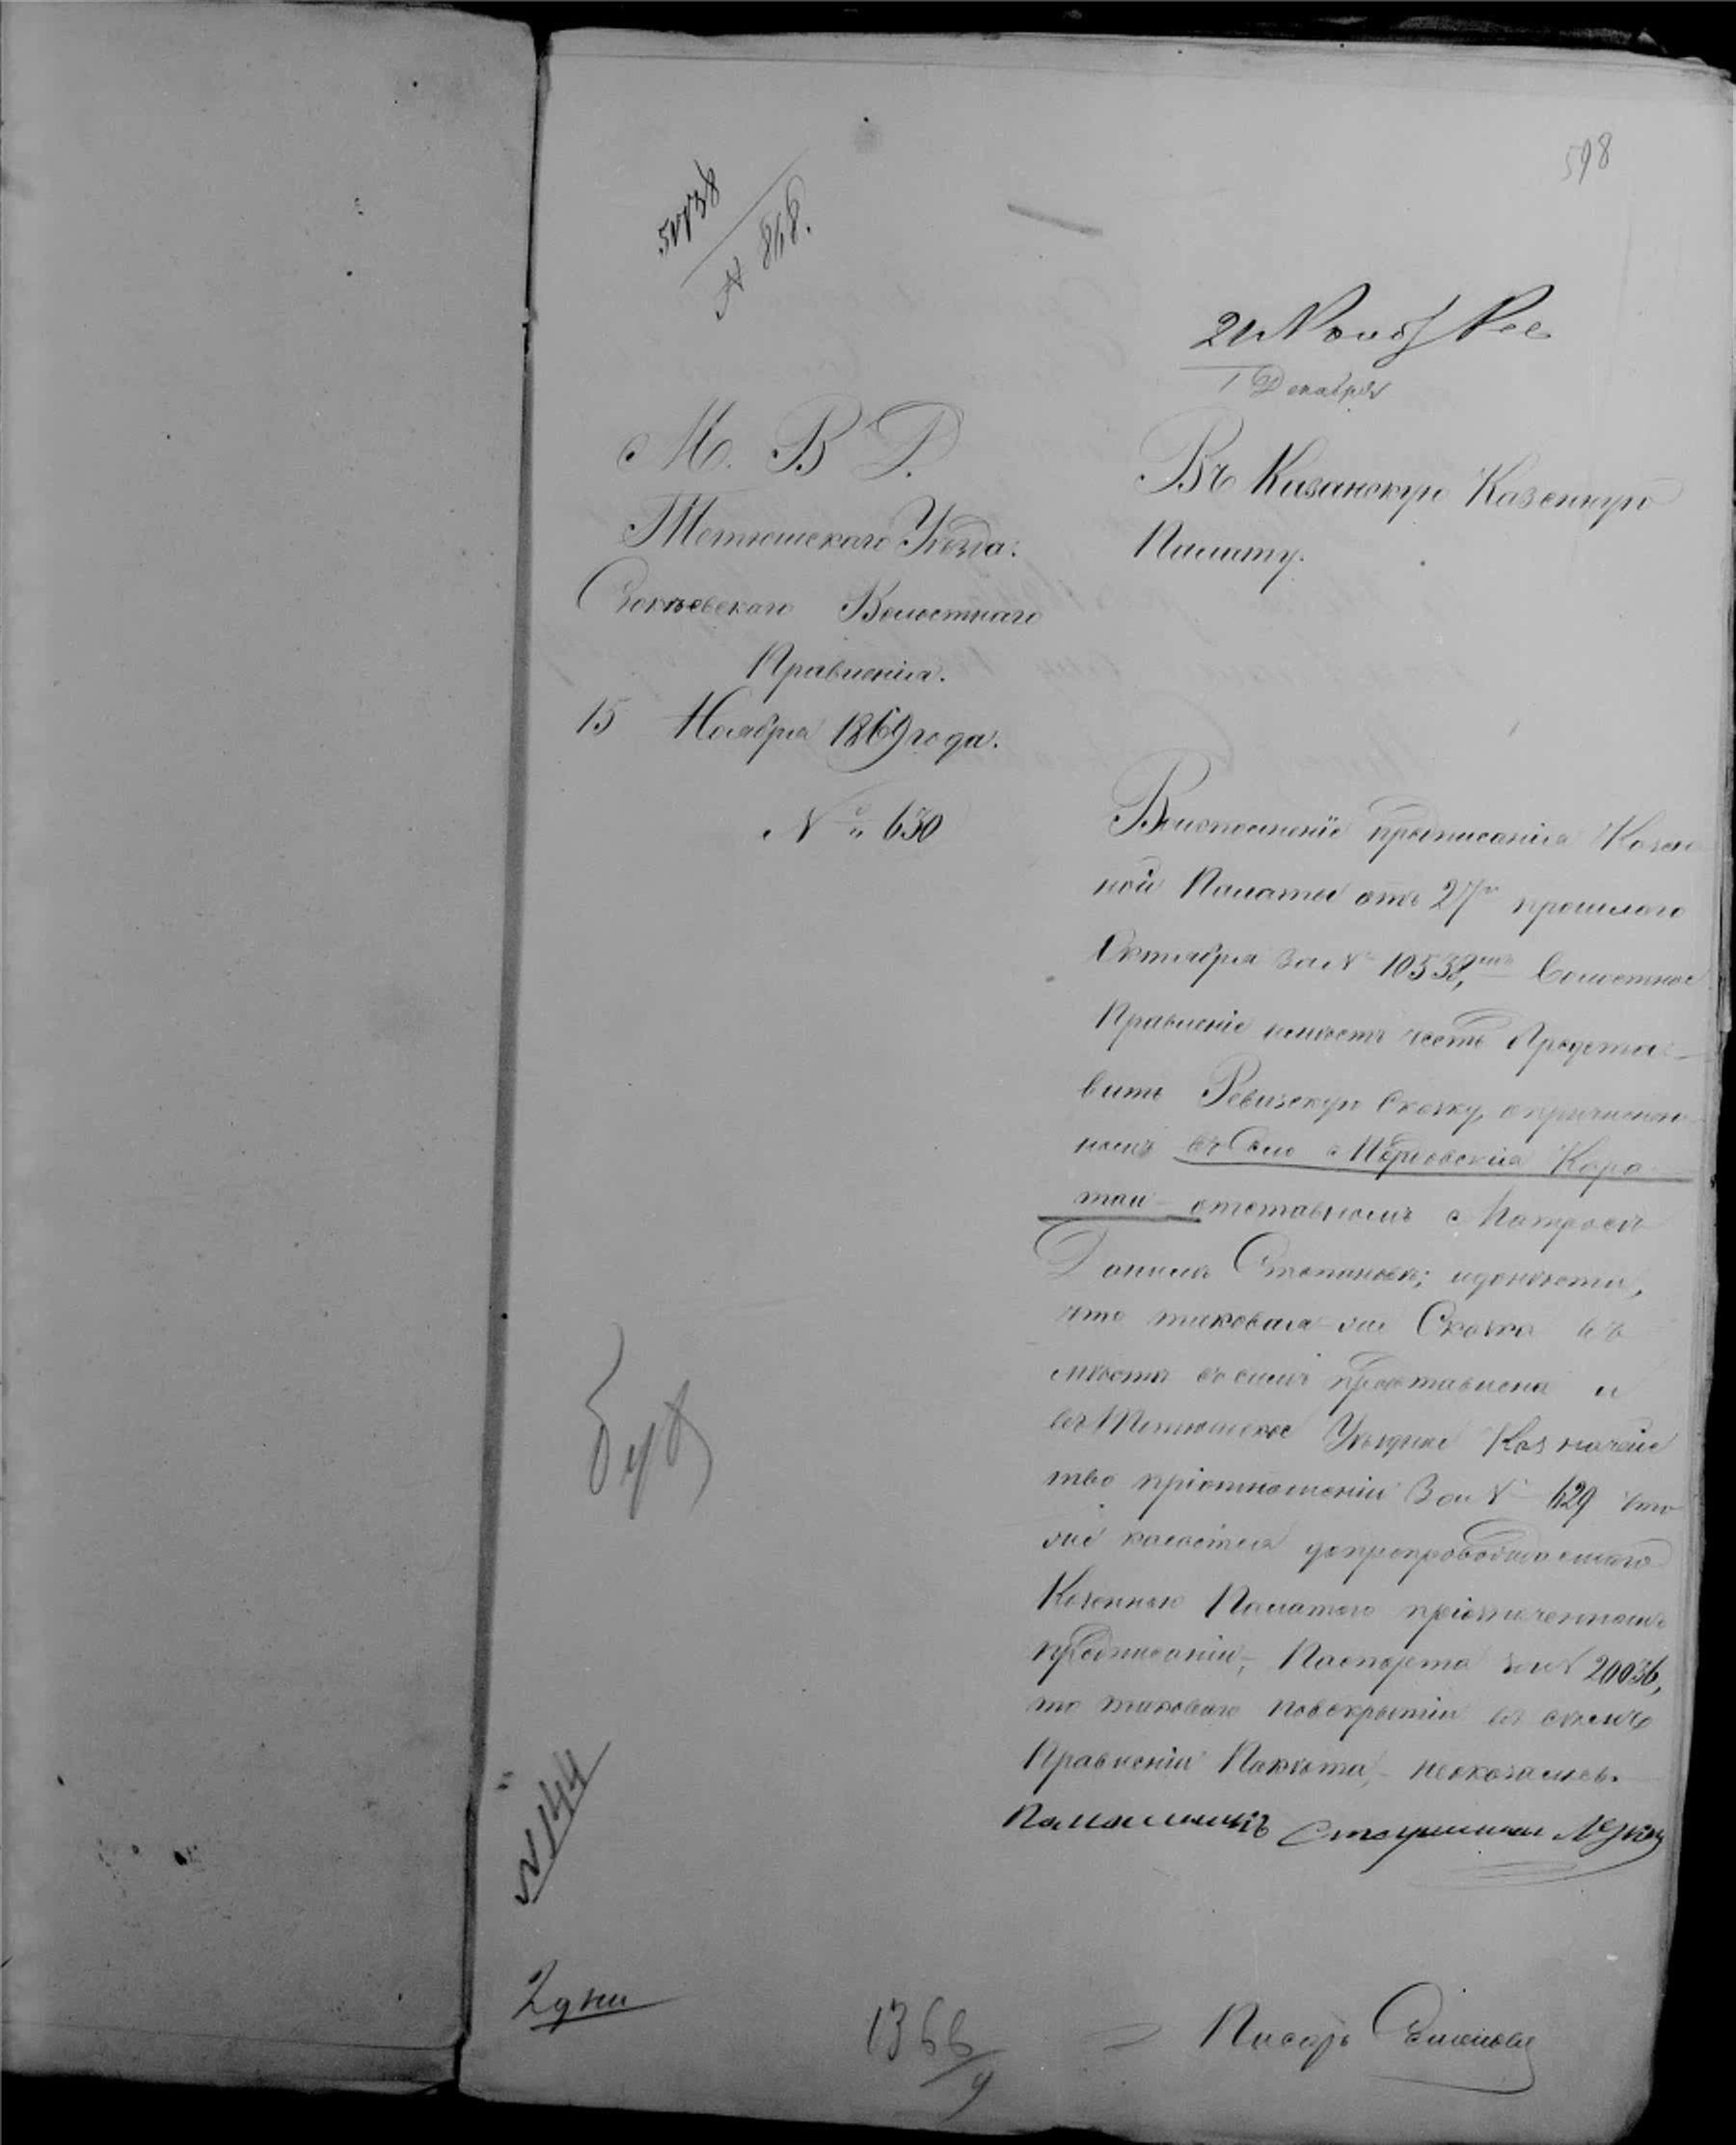 598
№ 868.
21 Нояб
1 Декабря
М. В. Д.
Тетюшскаго Уѣзда.
Волостнаго
Правленія.
15 Ноября 1869 года.
№ 630
Въ Казанскую Казенную
Палату.
Воисполненіе предписанія Казен
ной Палаты отъ 27го прошлаго
Октября за № 10538, Волостное
Правленіе имѣетъ честь предста-
вить Ревизскую Сказку, опричислен-
номъ въ Село Мордовскія Кара-
таи отставномъ Матросѣ
Данилѣ Степановѣ; идонести,
что таковая же Сказка въ
мѣстѣ съ симъ представлена и
въ Тетюшское Уѣздное Казначейс
тво приотношеніи за № 629 что
же касается допрепровождаемаго
Казенною Палатою
предписаніи, Паспорта за № 20036,
то таковаго повскрытіи въ семъ
Правленіи Пакета, неоказалось.
Старшина
Писарь
2 дни
№ 144
1366
9